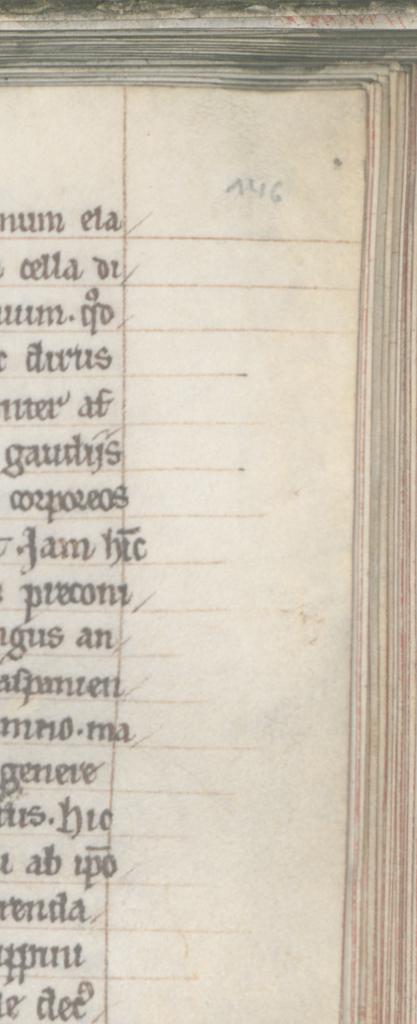 146
num ela/
cella di/
uum. qd̾o/
dictus
niter af
gaudijs
corporeos
. Jam hīc
preconi/
ngus an/
aspanien/
ma/
genere
tus. hic
ab ip̄o
renda/
ippini
de dec̾